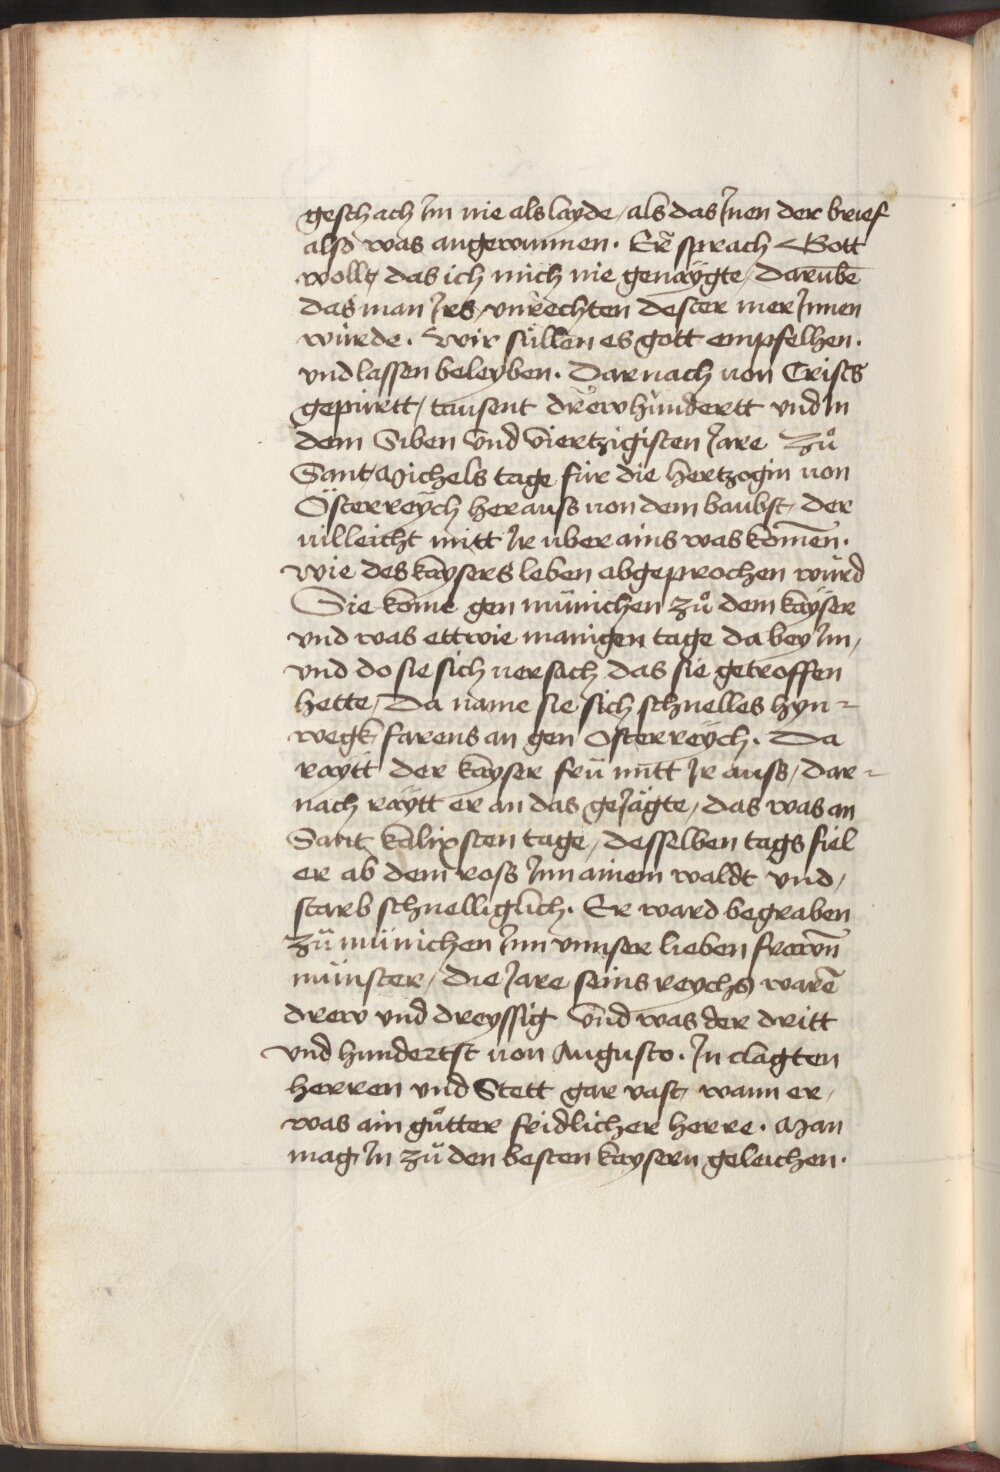 geschach Im nie als layde / als das Inen der brief
also was angewunnen. Er sprach Gott
wollt das ich mich nie genaÿgte / darūbe
das man Irs vnrechten dester mer Innen
würde. wir süllen es gott empfelhen.
vnd lassen beleyben. Darnach von Crists
gepürtt / tausent drewhundertt vnd In
dem Siben vnd viertzigisten Jare Zů
Sant Michels tage für die hertzogin von
Österreÿch herauss von dem baubst / der
villeicht mitt Ir vber ains was komēn.
wie des kaysers leben abgeprochen würd
Sie kome gen münichen zů dem kayser
vnd was ettwie manigen tage da bey Im /
vnd do sie sich versach das sie getroffen
hette / Da name sie sich schnelles hyn =
wegk farens an gen Osterreÿch. Da
raytt der kayser frü mitt Ir auss / dar =
nach raytt er an das geJägte / das was an
Sant kalixsten tage / desselben tags fiel
er ab dem ross Inn ainem waldt vnd /
starb schnelliglich. Er ward begraben
zů münichen Inn vnnser lieben frawn̄
münster / die Jare seins reychs warē
drew vnd dreyssig vnd was der dritt
vnd hundertst von Augusto. In clagten
herren vnd Stett gar vast / wann er /
was ain gůtter fridlicher herre. Man
mag In zů den besten kaysern geleichen.